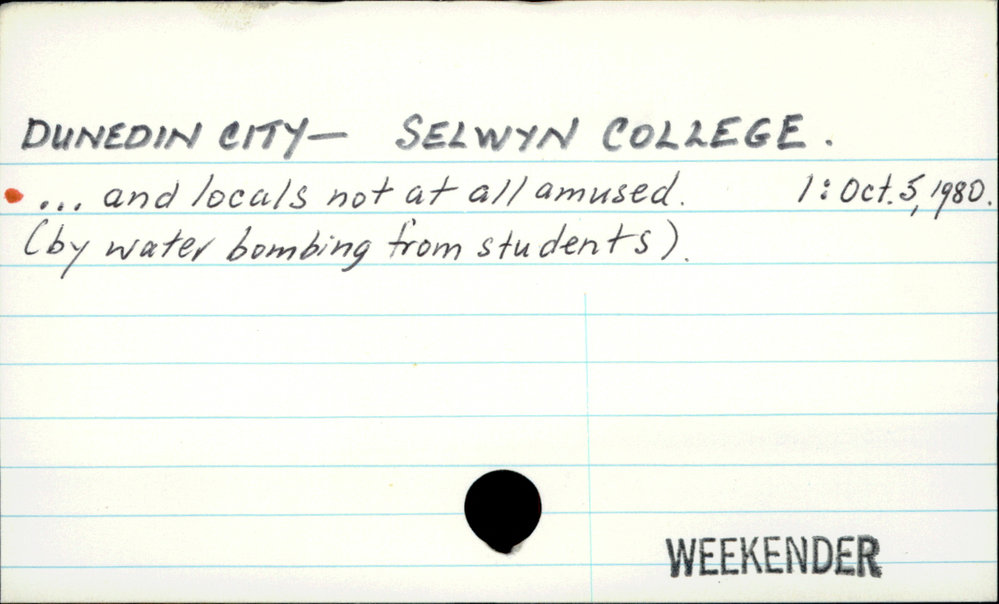 DUNEDIN CITY— SELWYN COLLEGE.
... and locals not at all amused. 1: Oct. 5, 1980.
(by water bombing from students).
WEEKENDER